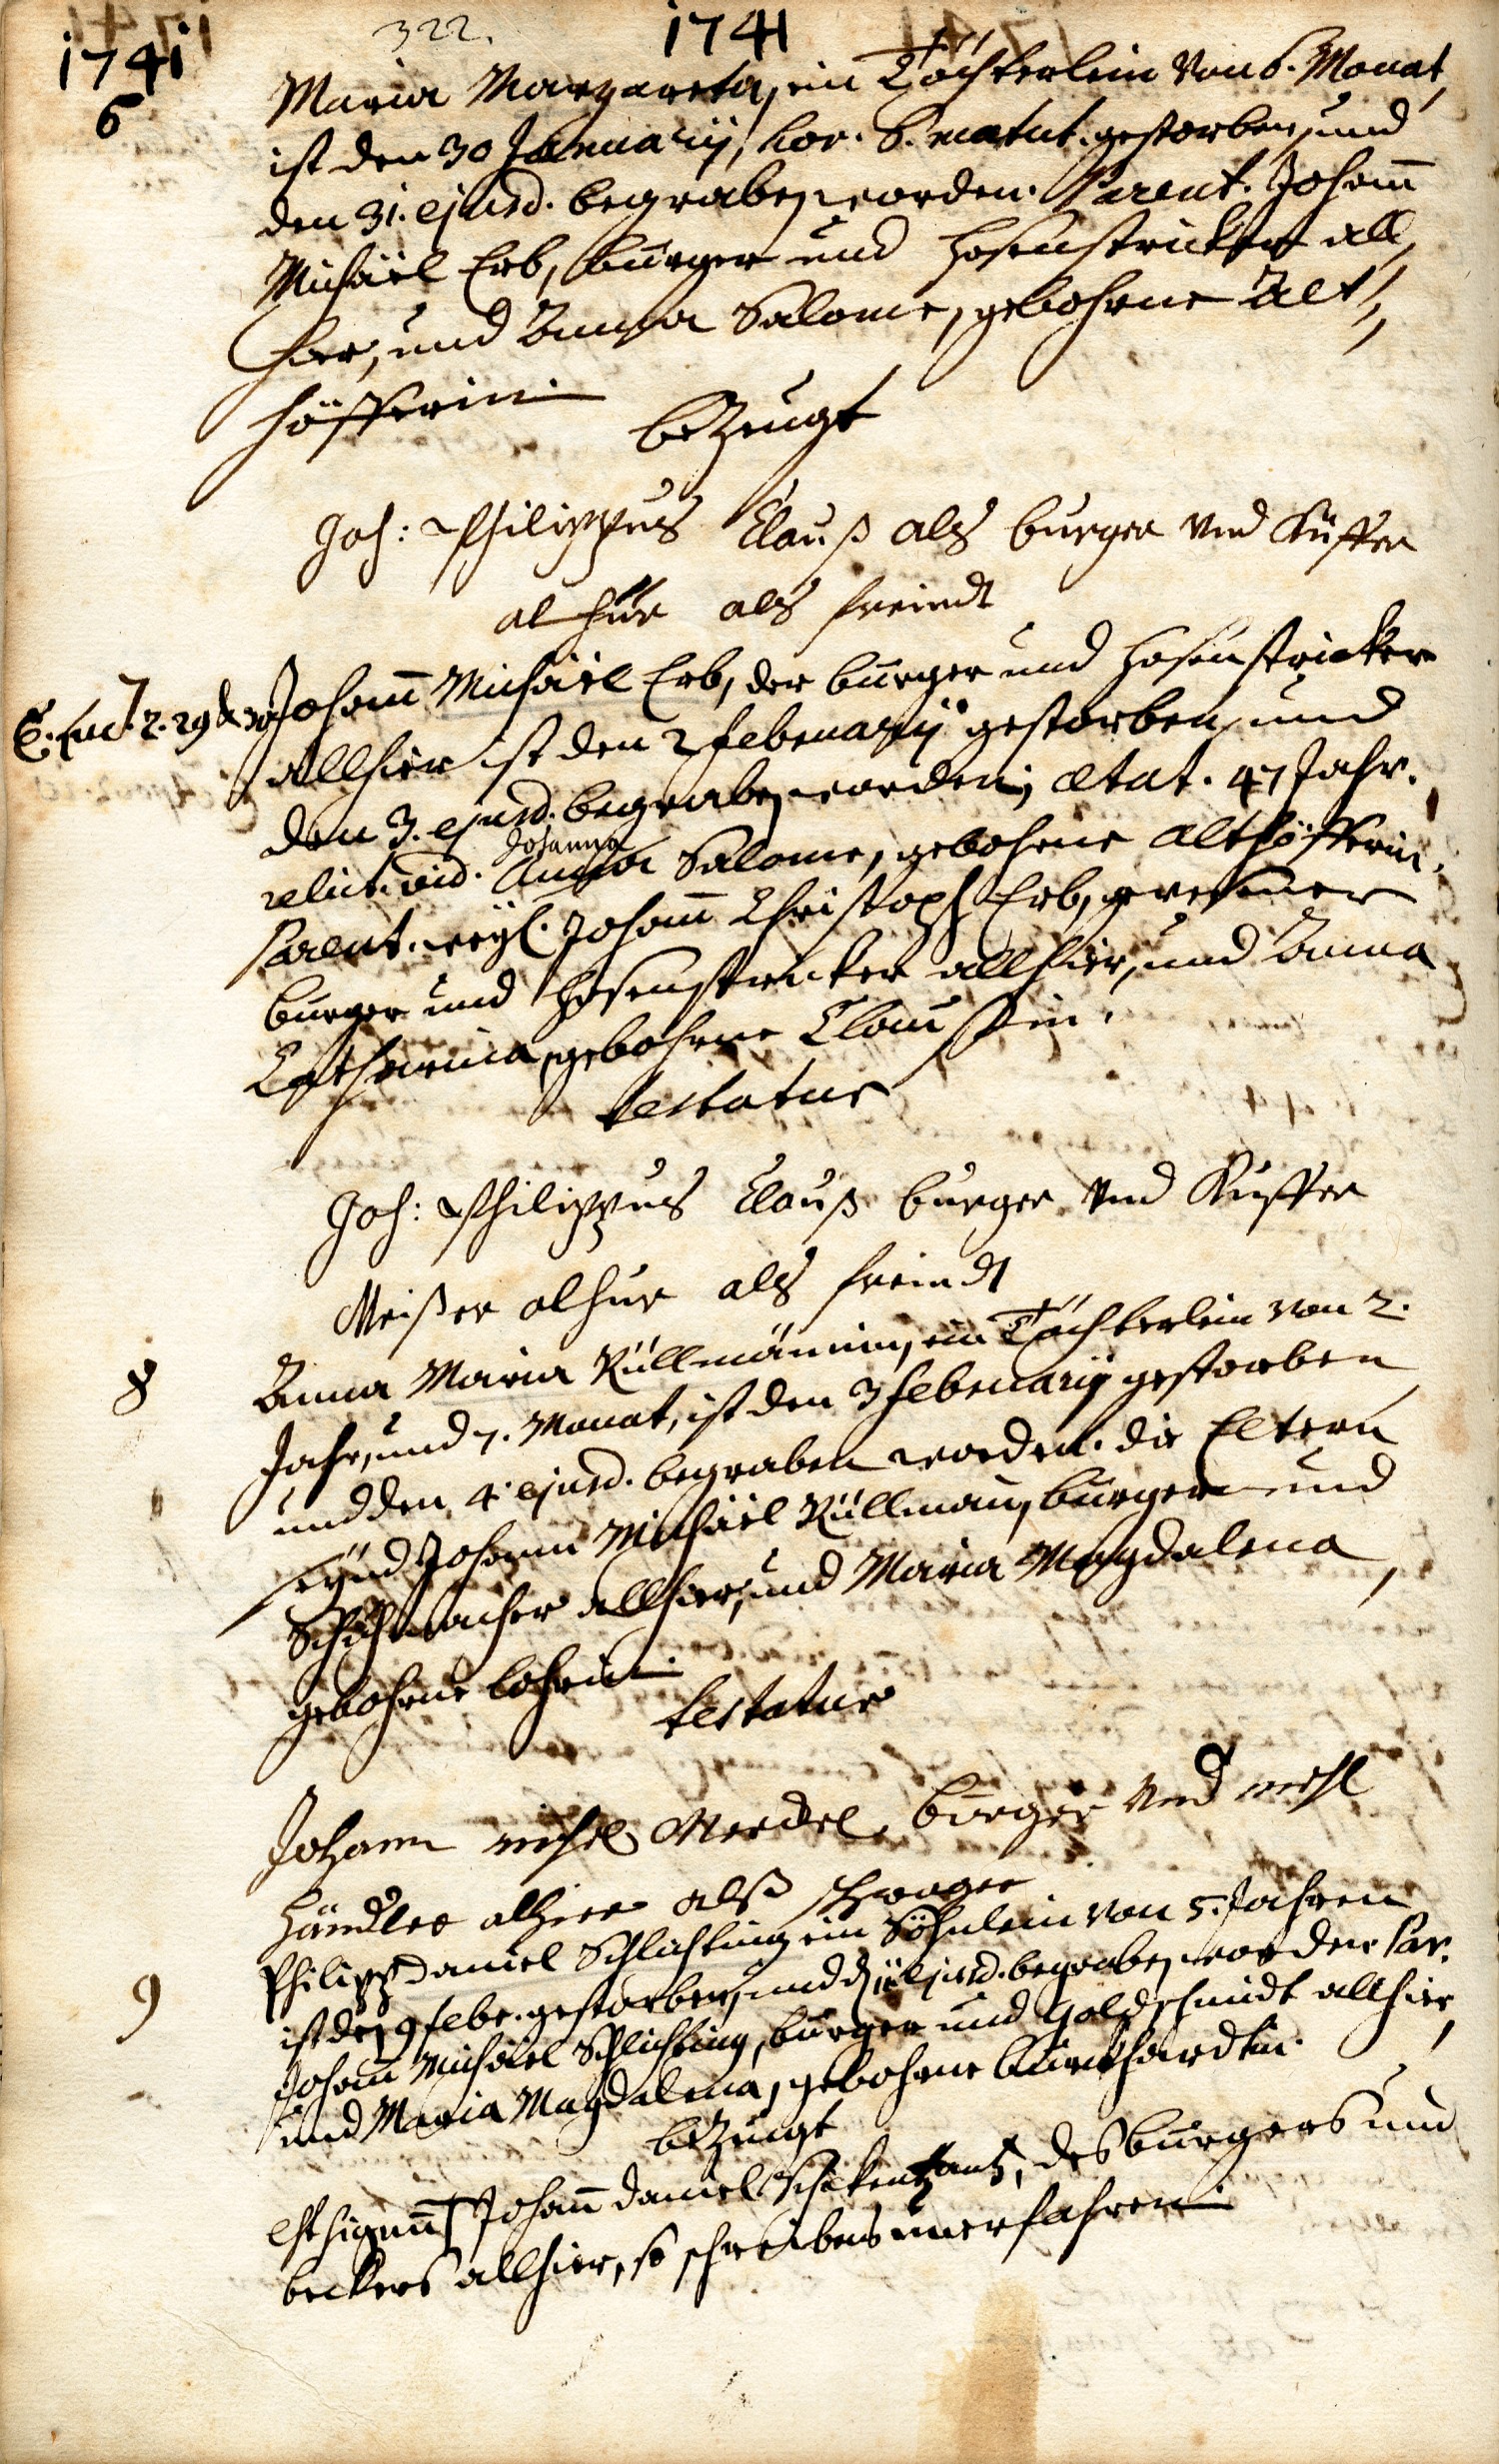 322.
1741 1741
6
Maria Margareta, ein Töchterlein von 6. Monat,
ist den 30 Januarij, hor. 8. matut. gestorben, und
den 31. ejusd. begraben worden. Parent. Johann̄
Michäel Erb, burger und Hosenstricker all,
hier, und Anna Salome, gebohrne Alt,,
höfferin.
bezeugt
Joh: Philippus Clauß als burger und Küffer
alhier als freindt
7
E. Luc. 2. 29 & 30
Johann̄ Michäel Erb, der burger und Hosenstricker
allhier ist den 2 februarij gestorben, und
den 3. ejusd. begraben worden, ætat. 47 Jahr.
Johanna
relict. vid. Anna Salome, gebohrne Althöfferin.
Parent. weyl. Johann̄ Christoph Erb, gewesener
burger und Hosenstricker allhier, und Anna
Catharina, gebohrne Claussin.
testatur
Joh: Philippus Clauß burger und Küffer
Meister alhier als freindt
8
Anna Maria Küllmännin, ein Töchterlein von 2.
Jahr, und 7. Monat, ist den 3 februarij gestorben
und den 4. ejusd. begraben worden. die Eltern
seynd Johann Michäel Küllman, burger und
Schuhmacher allhier, und Maria Magdalena,
gebohrne Lohrin.
testatur
Johann Mendel, burger und mehl
händler alhier alß schwager
9
Philipp Daniel Schlichting ein Söhnlein von 5. Jahren
ist den 9 febr. gestorben, und d. 11 ejusd. begraben worden. Par.
Johann̄ Michäel Schlichting, burger und Goldschmidt allhier,
und Maria Magdalena, gebohrne Burckhardtin.
bezeugt
Johann̄ Daniel des burgers und
beckers allhier, so schreibens unerfahren.